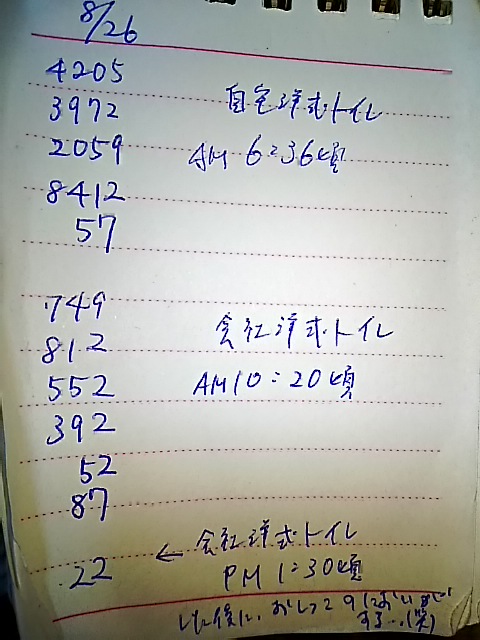 8/26
4205
3972 自宅洋式トイレ
2059 AM 6:36頃
8412
57
749
812 会社洋式トイレ
552 AM10:20頃
392
52
87
← 会社洋式トイレ
22 PM 1:30頃
した後に、おしっこのにおいが
する…(笑)